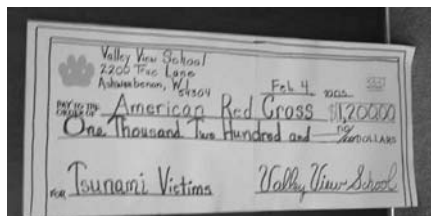 Valley View School
2200 True Lane
Ashwaubenon, WI
54304
Feb 4 2005
PAY TO THE ORDER OF American Red Cross $1,200.00
One Thousand Two Hundred and no/100 DOLLARS
FOR Tsunami Victims Valley View School